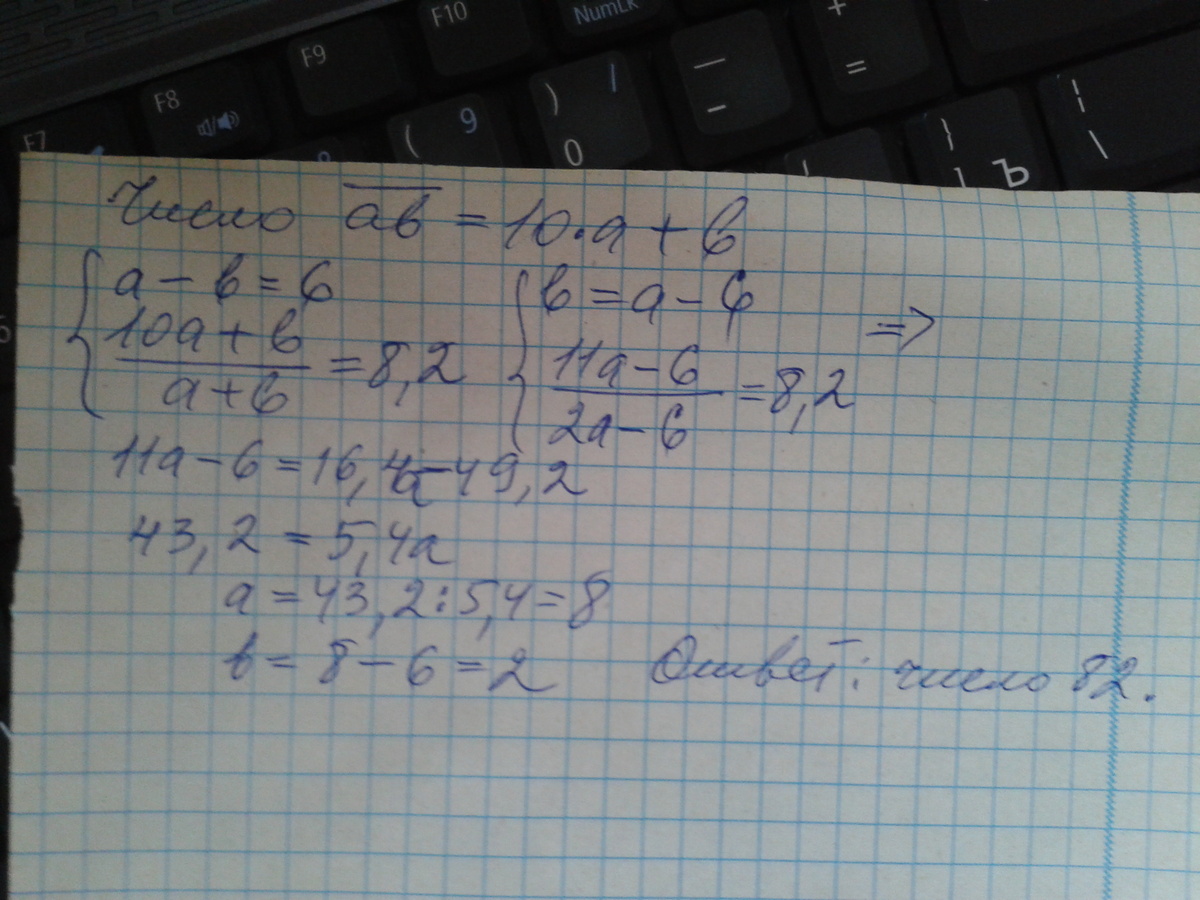 F10
NumLk
+
=
F9
—
-
F8
) /
0
( 9
F7
8
}
] Ъ
|
\
Число ab = 10·a + b
a - b = 6
10a + b
a + b
= 8,2
b = a - 6
11a - 6
2a - 6
= 8,2
=>
11a - 6 = 16,4a - 49,2
43,2 = 5,4a
a = 43,2 : 5,4 = 8
b = 8 - 6 = 2
Ответ: число 82.